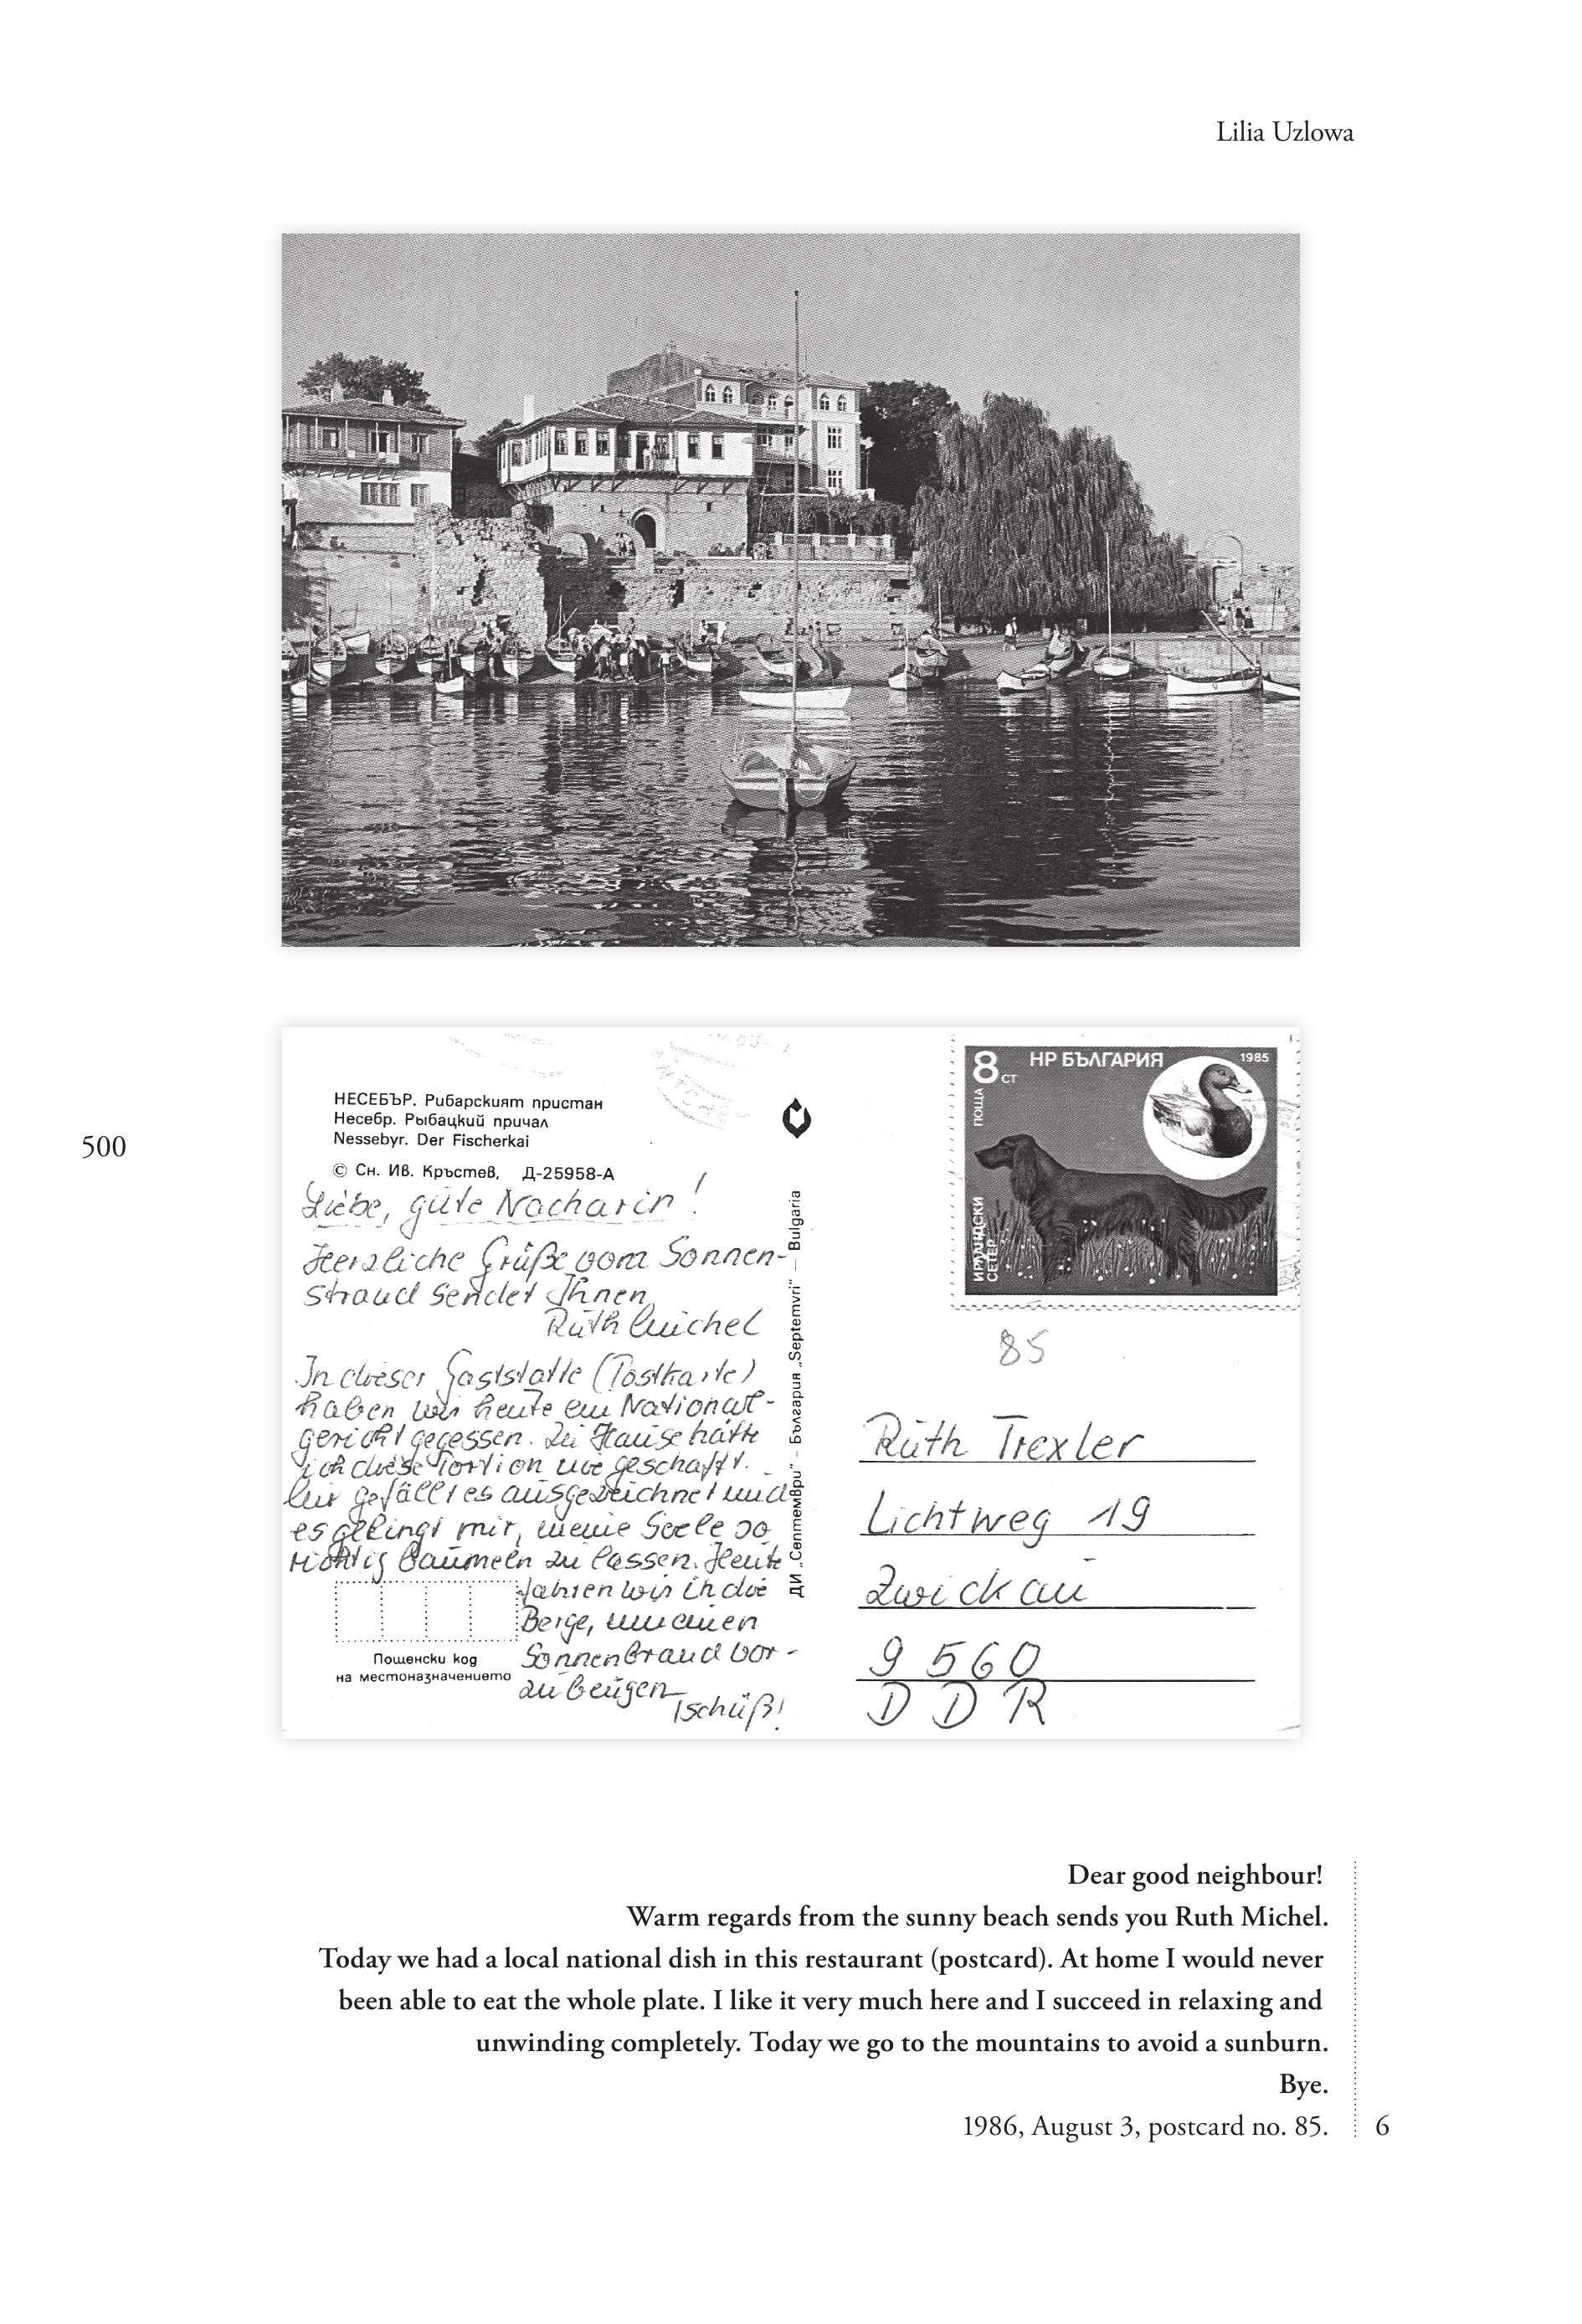 Lilia Uzlowa
500
НЕСЕБЪР. Рибарският пристан
Несебр. Рыбацкий причал
Nessebyr. Der Fischerkai
© Сн. Ив. Кръстев, Д-25958-А
Liebe, gute Nacharin!
Herzliche Grüße vom Sonnen-
strand sendet Ihnen
Ruth Michel
In dieser Gaststätte (Postkarte)
haben wir heute ein National-
gericht gegessen. Zu Hause hätte
ich diese Portion nie geschafft.
Mir gefällt es ausgezeichnet und
es gelingt mir, meine Seele so
richtig baumeln zu lassen. Heute
fahren wir in die
Berge, um einen
Sonnenbrand vor-
zubeugen
Tschüß!
Пощенски код
на местоназначението
ДИ „Септември" – България „Septemvri" – Bulgaria
8 СТ
НР БЪЛГАРИЯ
1985
ПОЩА
ИРЛАНДСКИ
СЕТЕР
85
Ruth Trexler
Lichtweg 19
Zwickau
9560
DDR
Dear good neighbour!
Warm regards from the sunny beach sends you Ruth Michel.
Today we had a local national dish in this restaurant (postcard). At home I would never
been able to eat the whole plate. I like it very much here and I succeed in relaxing and
unwinding completely. Today we go to the mountains to avoid a sunburn.
Bye.
1986, August 3, postcard no. 85.
6